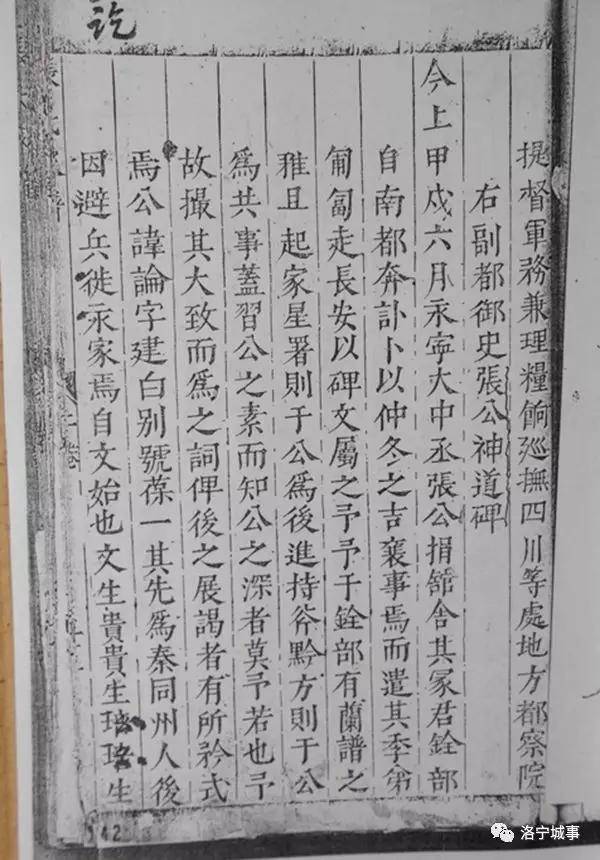 訖
提督軍務兼理糧餉廵撫四川等處地方都察院
右副都御史張公神道碑
今上甲戍六月永寧大中丞張公捐舘舍其冡君銓部
自南都奔訃卜以仲冬之吉襄事焉而遣其季弟
匍匐走長安以碑文屬之予予于銓部有蘭譜之
雅且起家星署則于公爲後進持斧黔方則于公
爲共事蓋習公之素而知公之深者莫予若也予
故撮其大致而爲之詞俾後之展謁者有所矜式
焉公諱論字建白别號葆一其先爲秦同州人後
因避兵徙永家焉自文始也文生貴貴生珤珤生
42
洛宁城事